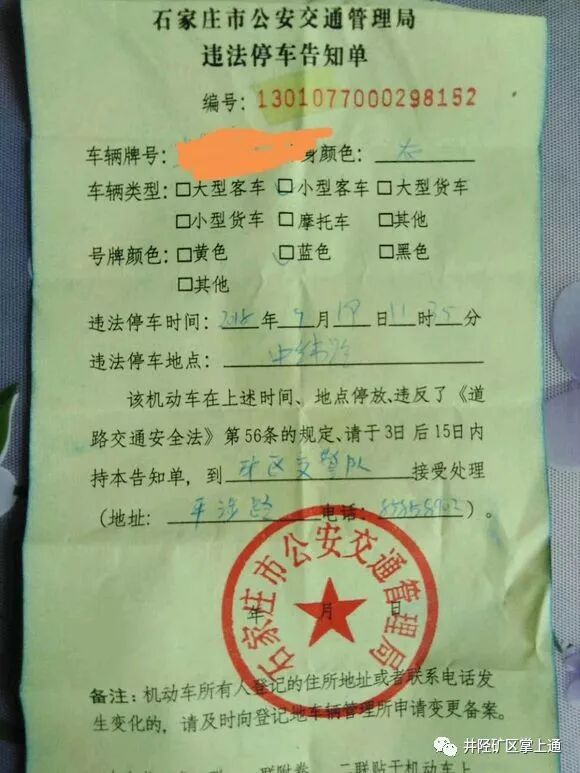 石家庄市公安交通管理局
违法停车告知单
编号：1301077000298152
车辆牌号： 身颜色：
车辆类型：□大型客车 □小型客车 □大型货车
□小型货车 □摩托车 □其他
号牌颜色：□黄色 □蓝色 □黑色
□其他
违法停车时间：2018年9月19日11时35分
违法停车地点：中纬路
该机动车在上述时间、地点停放，违反了《道
路交通安全法》第56条的规定、请于3日后15日内
持本告知单，到矿区交警队接受处理
（地址：平涉路 电话： ）。
石家庄市公安交通管理局
年 月 日
备注：机动车所有人登记的住所地址或者联系电话发
生变化的，请及时向登记地车辆管理所申请变更备案。
联附卷 二联贴于机动车上
井陉矿区掌上通